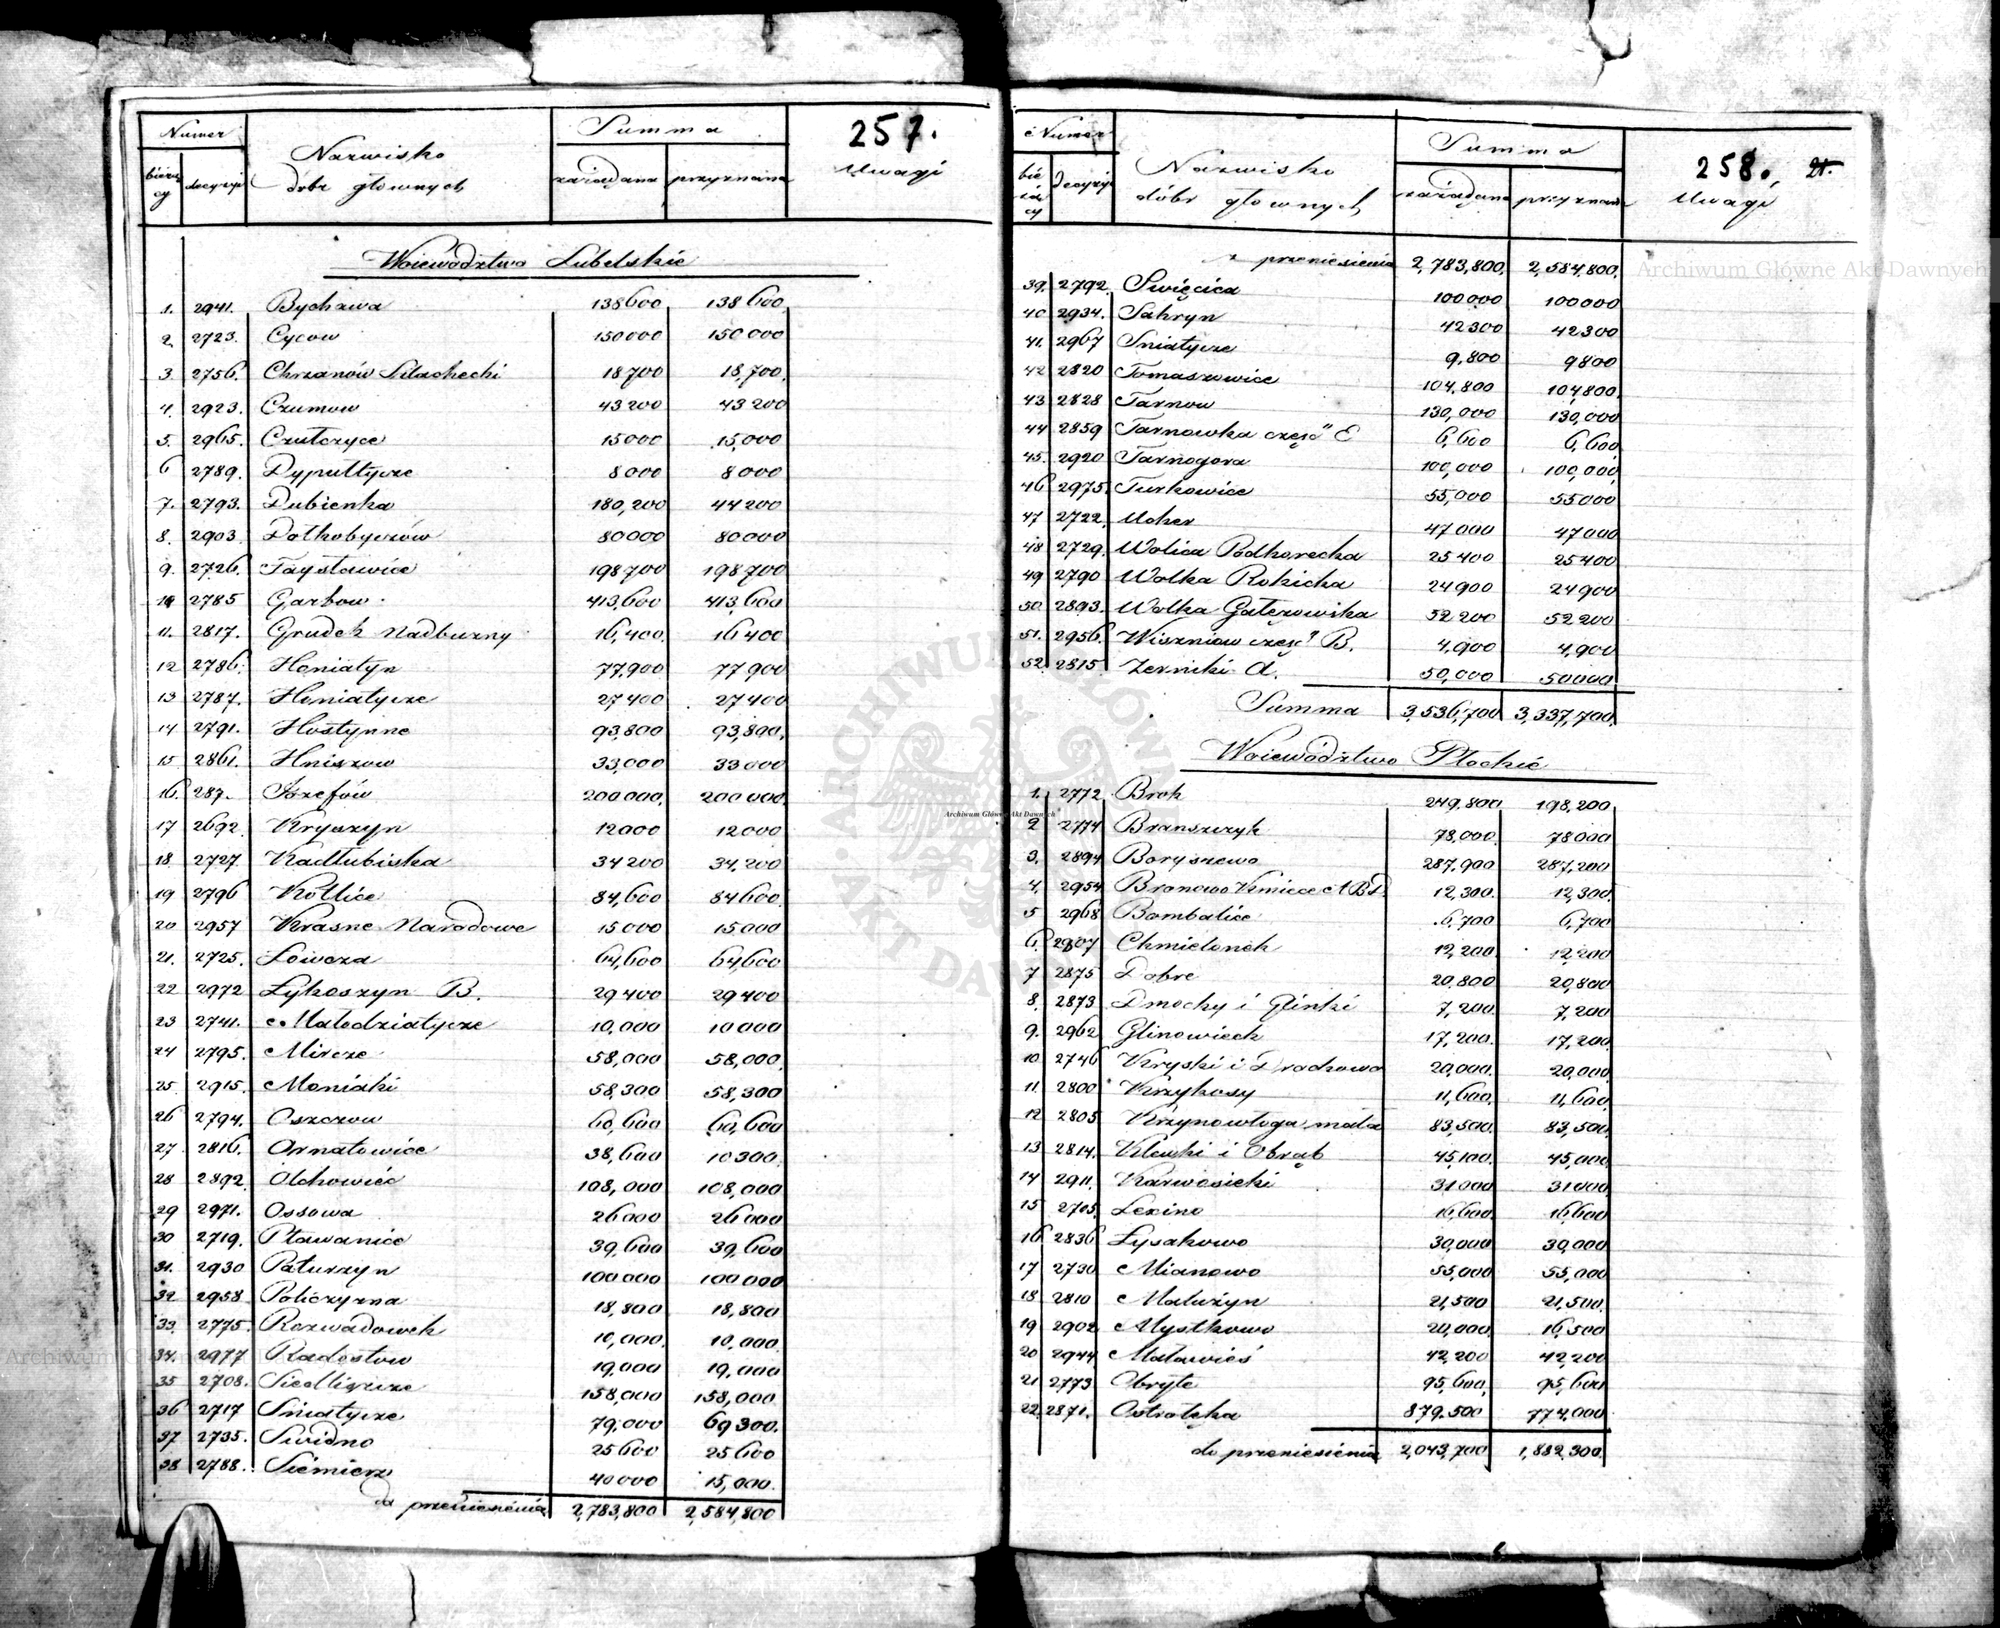 257.
Numer
Summa
Nazwisko
dobr głownych
bieżący
decyzyi
zażądana
przyznana
Uwagi
Woiewodztwo Lubelskie
1. 2941. Bychawa 138600 138600
2. 2723. Cycow 150000 150000
3. 2756. Chrzanów Szlachecki 18700 18,700.
4. 2923. Czumow 43200 43200
5. 2965. Czułczyce 15000 15,000
6 2789. Dypułtycze 8000 8000
7. 2793. Dubienka 180,200 44200
8. 2903. Dołhobyczów 80000 80000
9. 2726. Faysławice 198700 198700
10 2785 Garbow 413,600 413,600
11. 2817. Grudek Nadbużny 16,400. 16400
12 2786. Honiatyn 77,900 77900
13 2787. Honiatycze 27400 27400
14 2791. Hostynne 93,800 93,800.
15 2861. Hniszow 33,000 33000
16. 287. Józefów 200000. 200000.
17 2692. Kryszyn 12000 12000
18. 2727 Kadłubiska 34200 34,200
19 2796 Kotlice 84,600 84600
20 2957 Krasne Narodowe 15000 15000
21. 2725. Łowcza 64,600 64,600
22 2972 Łykoszyn B. 29400 29400
23 2741. Małodziatycze 10,000 10000
24 2795. Mircze 58,000 58,000.
25. 2915. Moniaki 58,300 58,300
26 2794. Oszczow 60,600 60,600
27. 2816. Ornatowice 38,600 10300.
28 2892. Olchowiec 108,000 108,000
29 2971. Ossowa 26000 26000
30 2719. Pławanice 39,600 39,600
31. 2930 Paturzyn 100000 100000
32 2958 Policzyzna 18,800 18,800
33. 2775. Rozwadowek 10,000. 10,000.
34. 2977 Radostow 19,000 19,000
35 2708. Siedliszcze 158,000 158,000.
36 2717 Sniatycze 79,000 69300.
37 2735. Swidno 25600 25600
38 2788. Siemierz 40000 15,000.
do przeniesienia 2,783,800 2,584,800
258. 21.
Numer
Summa
Nazwisko
dóbr głownych
bieżący
decyzyi
zażądana
przyznana
Uwagi
z przeniesienia 2,783,800. 2,584,800.
39. 2792. Swięcica 100000 100000
40 2934. Sahryn 42300 42300
41. 2967 Sniatycze 9,800 9800
42 2820 Tomaszowice 104,800 104,800.
43 2828 Tarnow 130,000 130,000
44 2859 Tarnowka część E 6,600 6,600
45. 2920 Tarnogora 100,000 100,000
46 2975. Turkowice 55,000 55000
47 2722. Uher 47000 47000
48 2729. Wolica Podhorecka 25400 25400
49 2790 Wolka Rokicka 24900 24900
50. 2893. Wolka Gałęzowska 52200 52200
51. 2956. Wiszniow część B. 4,900 4,900
52. 2815 Zerniki A. 50,000 50000
Summa 3,536,700 3,337,700.
Woiewództwo Płockie
1. 2772 Brok 249,800 198,200
2 2774 Branszczyk 78,000. 78000
3. 2894 Boryszewo 287,900 287,200
4. 2954 Bronowo Kmiece 12,300. 12,300.
5 2968 Bombalice 6,700 6,700
6. 2807 Chmielonek 12,200 12,200
7 2875 Dobre 20,800 20,800
8. 2873 Dmochy i Glinki 7,200 7,200
9. 2962 Glinowieck 17,200. 17,200.
10 2746 Kryski i Drochowo 20,000. 20,000.
11. 2800 Krzykosy 11,600. 11,600.
12 2805 Krzynowłoga mała 83,500. 83,500.
13 2814. Klewki i Obrąb 45,100. 45,000.
14 2911. Karwosieki 31000 31000
15 2705. Lexino 16,600. 16,600
16 2836 Łysakowo 30,000 30,000
17 2730 Mianowo 55,000 55,000
18 2810 Malużyn 21,500 21,500.
19 2902 Mystkowo 20,000. 16,500
20 2944 Malawieś 42,200 42,200
21 2773 Obryte 95,600. 95,600
22. 2871. Ostrołęka 879,500 774,000
do przeniesienia 2,043,700 1,882,300.
Archiwum Główne Akt Dawnych
Archiwum Główne Akt Dawnych
ARCHIWUM GŁÓWNE AKT DAWNYCH
Archiwum Główne Akt Dawnych